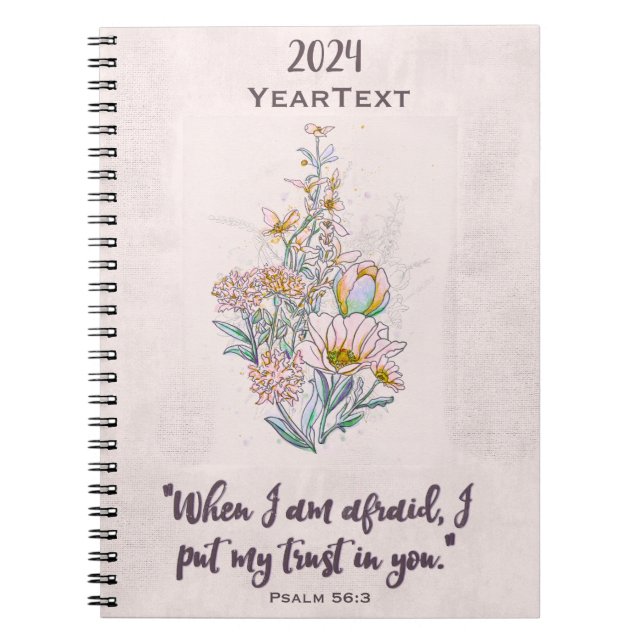 2024
YearText
"When I am afraid, I
put my trust in you."
Psalm 56:3